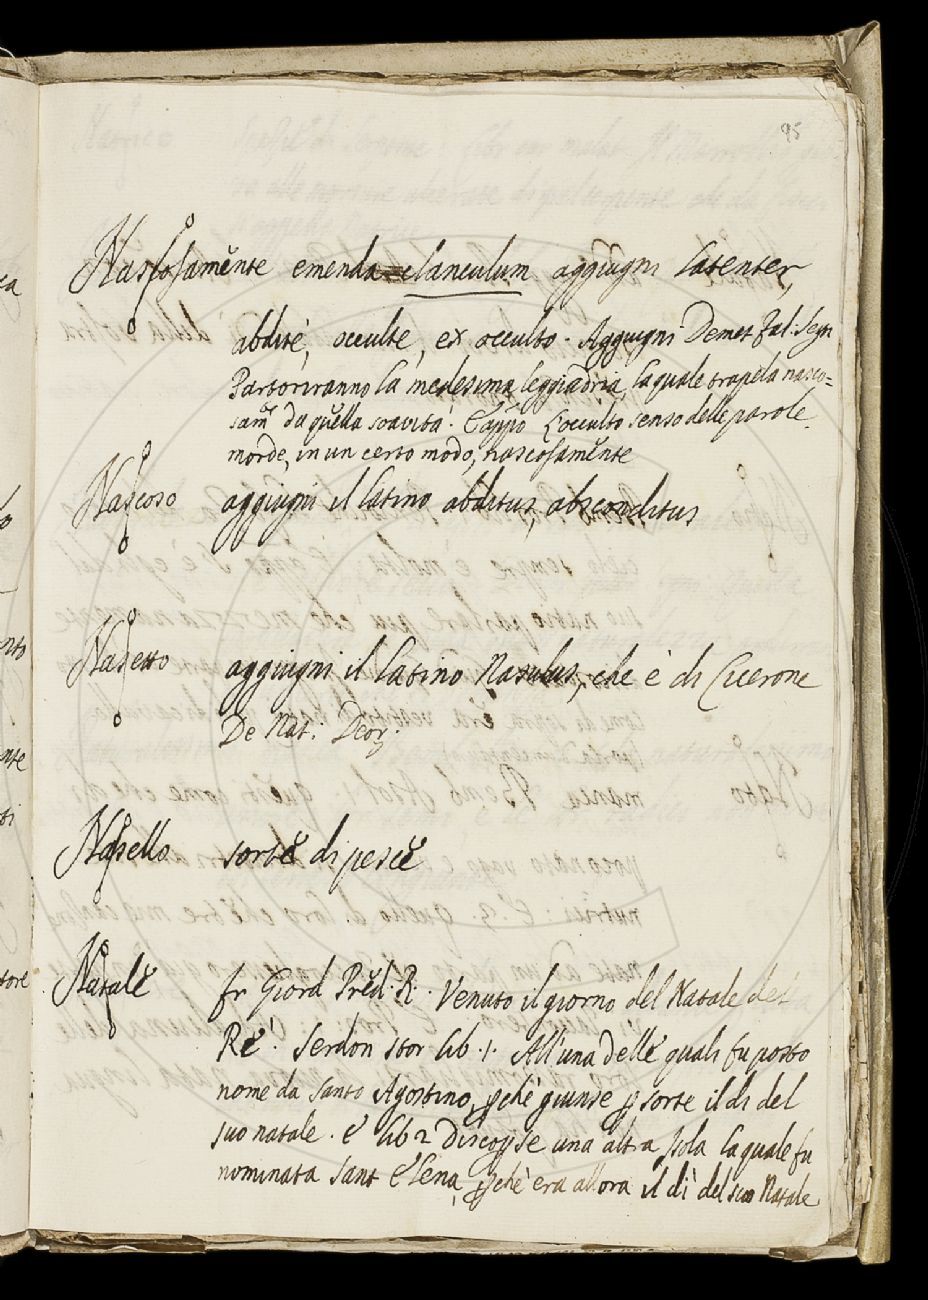 95
Nascosamẽnte emenda clanculum aggiugni latenter,
abditè, occulte, ex occulto. Aggiugni Demet fal. Segn
Partoriranno la medesima leggiadria, la quale trapela nasco=
sam̃ da quella soavità. E appo L'occulto senso delle parole
morde, in un certo modo, nascosamẽnte
Nascoso aggiugni il latino abditus, absconditus
Nasetto aggiugni il latino Nasulus, che è di Cicerone
De Nat. Deor.
Nasello sorte di pesce
Natale fr Giord Pred. R. Venuto il giorno del Natale del
Re. Serdon stor lib. 1. All'una delle quali fu posto
nome da Santo Agostino, ꝑchè giunse ꝑ sorte il dì del
suo natale. e lib 2 Discoꝑse una altra isola la quale fu
nominata Sant Elena, ꝑchè era allora il dì del suo Natale